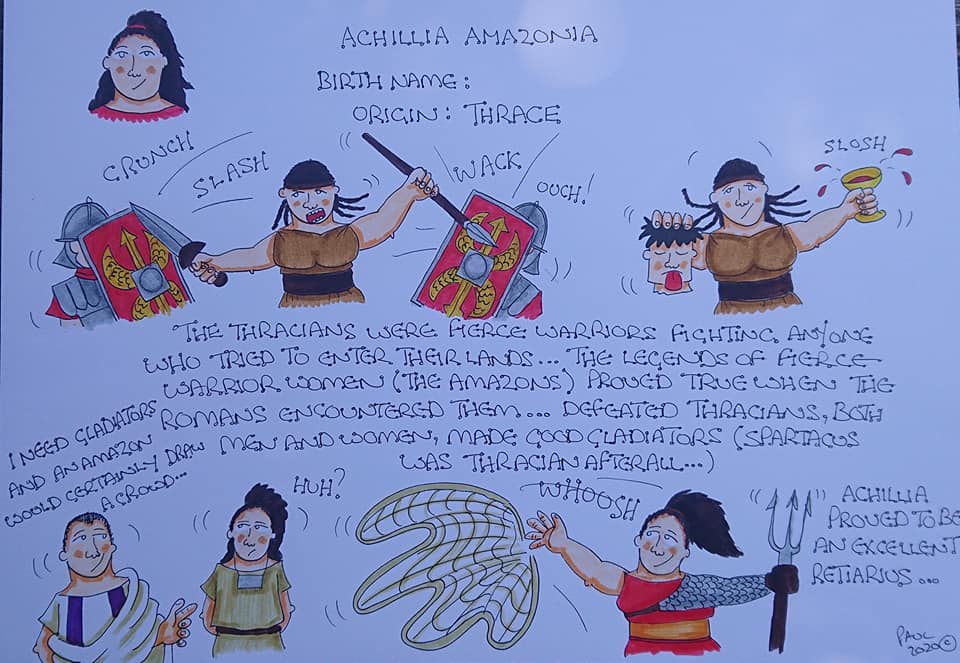 ACHILLIA AMAZONIA
BIRTH NAME:
ORIGIN: THRACE
CRUNCH
SLASH
WACK
OUCH!
SLOSH
THE THRACIANS WERE FIERCE WARRIORS FIGHTING, ANYONE
WHO TRIED TO ENTER THEIR LANDS... THE LEGENDS OF FIERCE
WARRIOR WOMEN (THE AMAZONS) PROVED TRUE WHEN THE
ROMANS ENCOUNTERED THEM... DEFEATED THRACIANS, BOTH
MEN AND WOMEN, MADE GOOD GLADIATORS (SPARTACUS
WAS THRACIAN AFTERALL...)
I NEED GLADIATORS
AND AN AMAZON
WOULD CERTAINLY DRAW
A CROWD...
HUH?
WHOOSH
ACHILLIA
PROVED TO BE
AN EXCELLENT
RETIARIUS...
PAUL
2020©